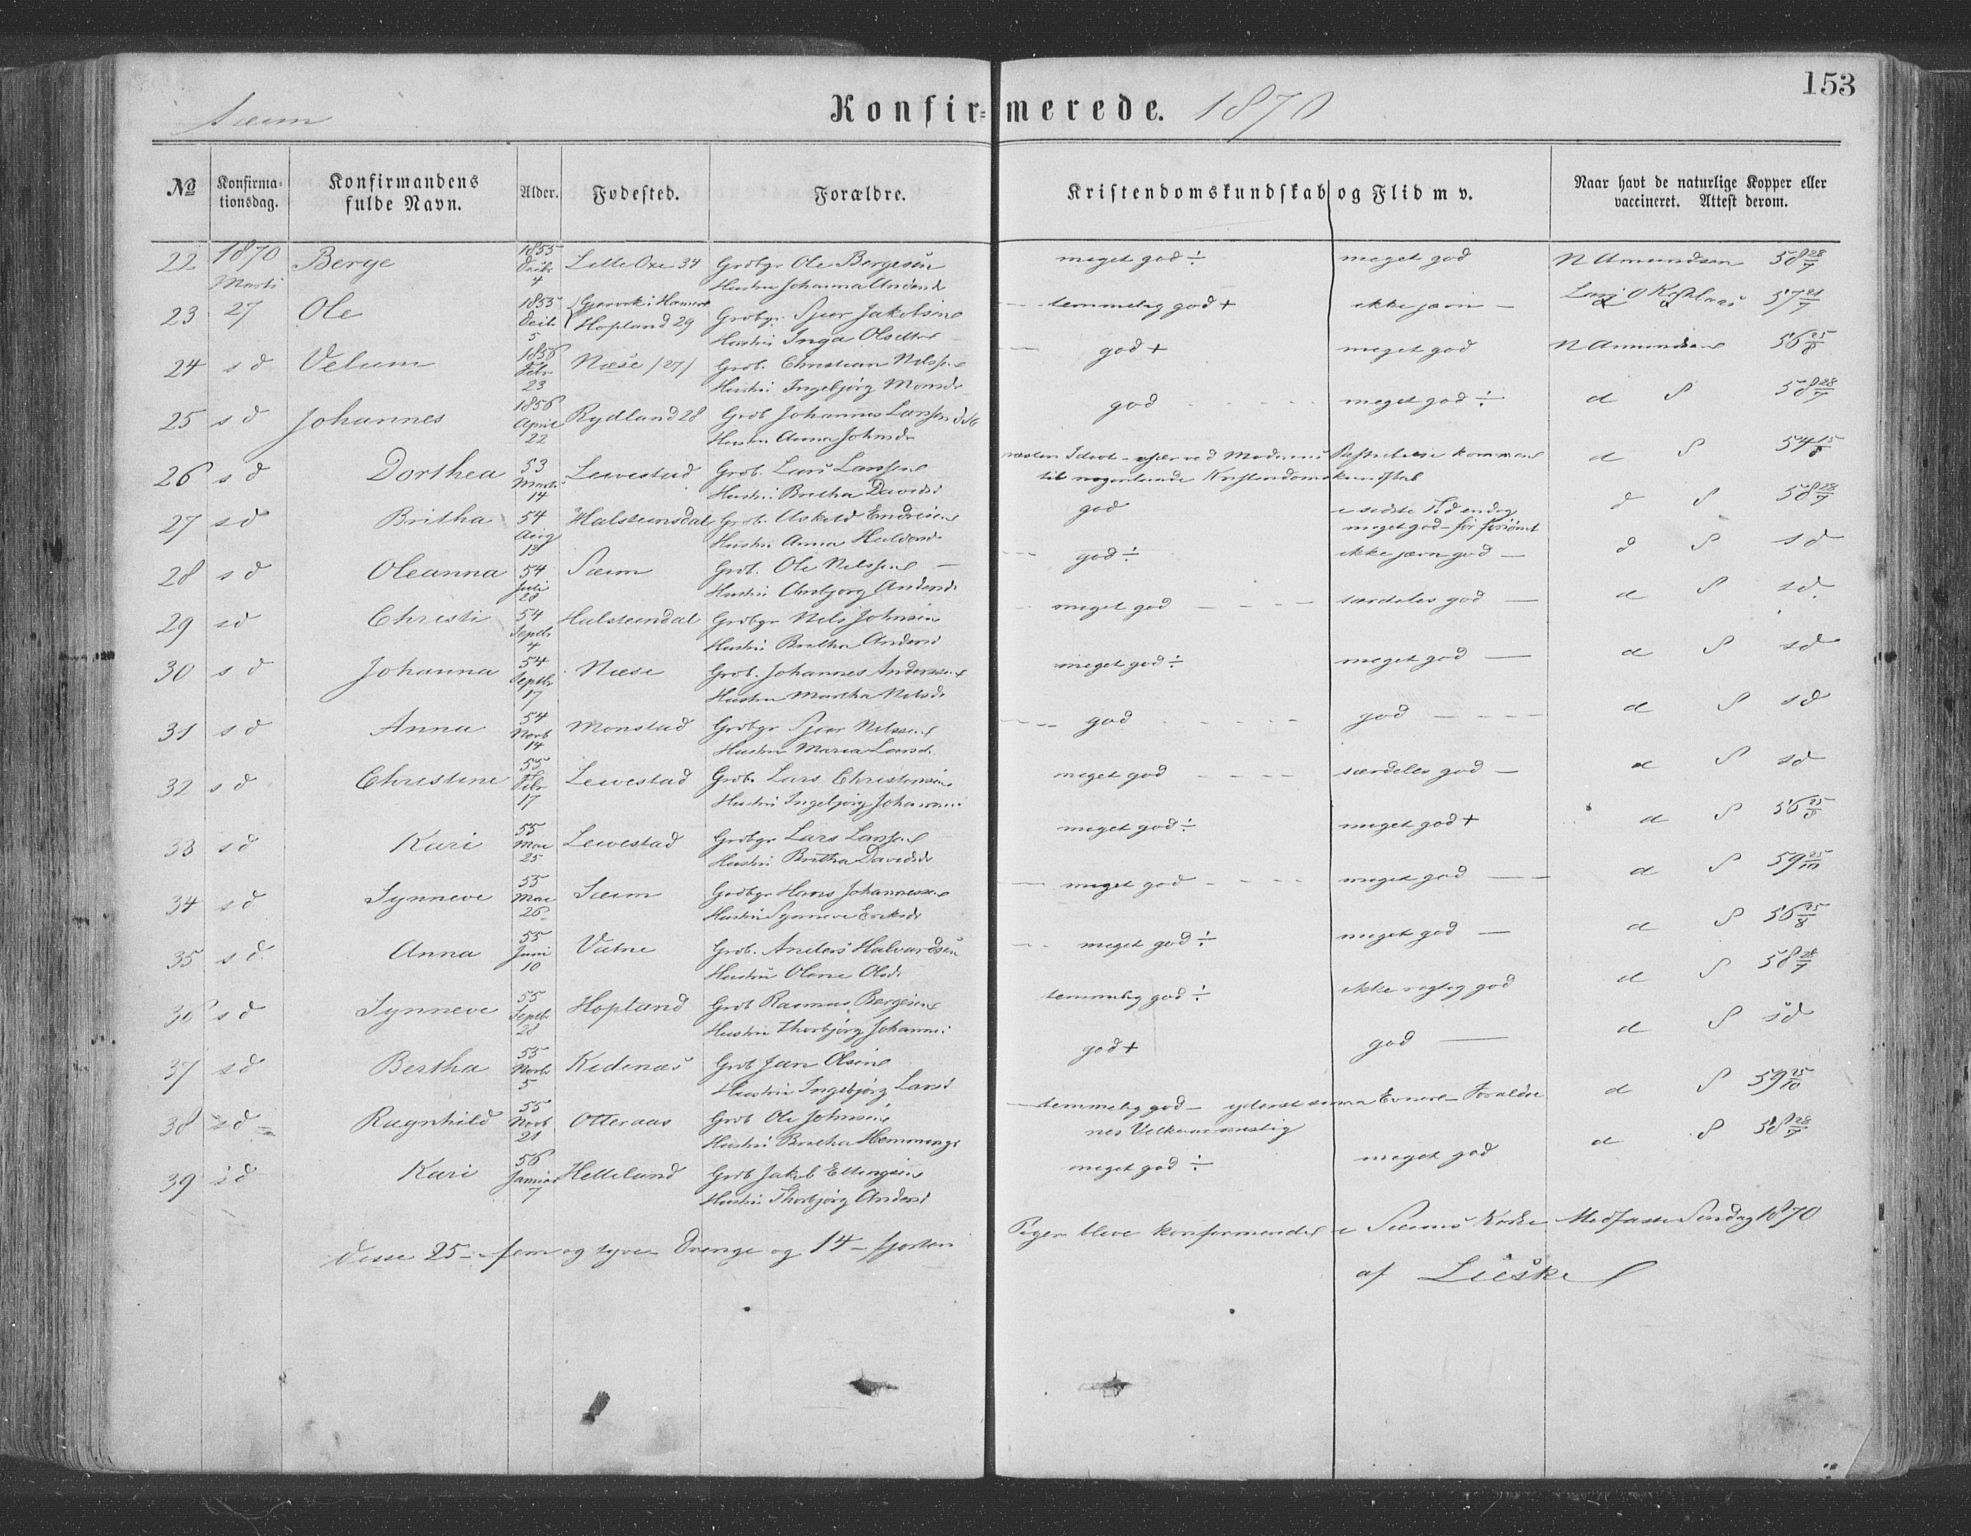 153
Sæim
Konfirmerede. 1870
No Konfirmationsdag. Konfirmandens fulde Navn. Alder. Fødested. Forældre. Kristendomskundskab og Flid m v. Naar havt de naturlige Kopper eller vaccineret. Attest derom.
22 1870 Marti Berge 1855 Decbr 4 Lille Oxe 34 Grdbgr Ole Bergesen Hustru Johanna Andersd meget god ÷ meget god N Amundsen 58 28/7
23 27 Ole 1855 Decbr 5 Hopland 29 Grdbgr. Sjur Jakobsen Hustru Inga Olsdtr temmelig god + ikke jævn — 57 21/7
24 s d Velum 1856 Febr 23 Næse /27/ Grdb. Christian Nilssen Hustru Ingebjörg Monsdr god + meget god N Amundsen 56 25/8
25 s d Johannes 1856 April 22 Rydland 28 Grdb Johannes Larssen Hustru Anna Johnsdr god meget god ÷ d S 58 28/7
26 s d Dorthea 53 Marti 14 Levestad Grdb. Lars Larssen Hustru Britha Davidsd næsten Idiot kommen til nogenlunde Kristendomskundskab d S 54 15/8
27 s d Britha 54 Aug 13 Halsteinsdal Grdb. Askild Endresen Hustru Anna Haldorsd god i sidste Tid endog meget god – før forsömt d S 58 28/7
28 s d Oleanna 54 Juli 28 Sæim Grdb. Ole Nilssen Hustru Ansbjörg Andersd god ÷ ikke jævn god — d S sd
29 s d Christi 54 Septbr 4 Halsteinsdal Grdbgr Nils Johnsen Hustru Britha Andersd meget god særdeles god — d S sd.
30 s d Johanna 54 Septbr 17 Næse Grdb. Johannes Anderssen Hustru Martha Nilsdr meget god ÷ meget god — d S sd
31 s d Anna 54 Novb 14 Monstad Grdbgr Sjur Nilssen Hustru Maria Larsd. god god d S sd
32 s d Christine 55 Febr 17 Levestad Grdb. Lars Christensen Hustru Ingebjörg Johannsd meget god særdeles god — d S sd
33 s d Kari 55 Mai 25 Levestad Grdbgr Lars Larssen Hustru Britha Davidsdr meget god ÷ meget god + d S 56 25/8
34 s d Synneve 55 Mai 26 Sæim Grdbgr Hans Johannessen Hustru Synneve Eriksdr meget god meget god — d S 59 25/10
35 s d Anna 55 Juni 10 Vatne Grdb. Anders Halvardsen Hustru Olene Olsdr meget god ÷ meget god — d S 56 25/8
36 s d Synneve 55 Septbr 28 Hopland Grdb Rasmus Bergesen Hustru Thorbjörg Johannsd temmelig god ÷ ikke regtig god d S 58 28/7
37 s d Bertha 55 Novbr 5 Kidenæs Grdb Jan Olsen Hustru Ingebjörg Larsd god + god — d S sd
38 s d Ragnhild 55 Novb 21 Otteraas Grdb Ole Johnsen Hustru Britha Hemmingsd temmelig god – yderst smaa Evner – Foraldrenes d S 59 25/10
39 s d Kari 56 Januar 7 Helleland Grdb Jakob Ellingsen Hustru Thorbjörg Andersd meget god ÷ meget god d S 58 28/7
Disse 25 – fem og tyve Drenge og 14 – fjorten Piger bleve konfirmerede i Sæims Kirke Midfaste Söndag 1870
af Lieske